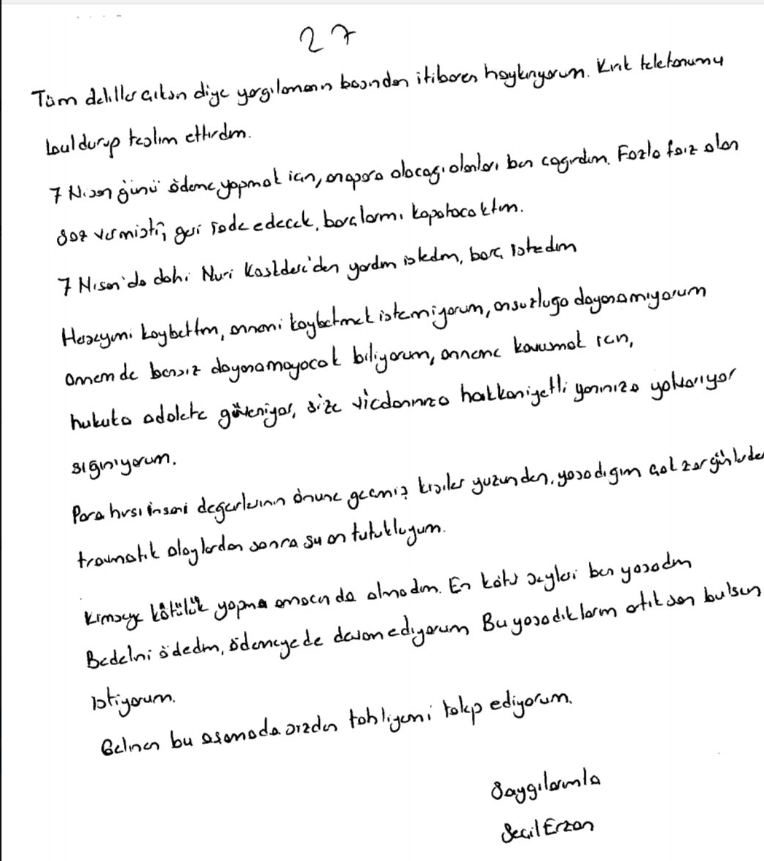 27
Tüm deliller çıksın diye yargılamanın başından itibaren haykırıyorum. Kırık telefonumu
buldurup teslim ettirdim.
7 Nisan günü ödeme yapmak için, anapara alacağı olanları ben çağırdım. Fazla faiz alan
söz vermişti, geri iade edecek, borçlarımı kapatacaktım.
7 Nisan'da dahi Nuri Kasıldere'den yardım istedim, borç istedim
Herşeyimi kaybettim, annemi kaybetmek istemiyorum, onsuzluğa dayanamıyorum
annem de bensiz dayanamayacak biliyorum, anneme kavuşmak için,
hukuka adalete güveniyor, size vicdanınıza hakkaniyetli yanınıza yakarıyor
sığınıyorum.
Para hırsı insani değerlerinin önüne geçmiş kişiler yüzünden, yaşadığım çok zor günlerden
travmatik olaylardan sonra şu an tutukluyum.
Kimseye kötülük yapma amacında olmadım. En kötü şeyleri ben yaşadım
Bedelini ödedim, ödemeye de devam ediyorum Bu yaşadıklarım artık son bulsun
istiyorum.
Gelinen bu aşamada sizden tahliyemi talep ediyorum.
Saygılarımla
Seçil Erzan